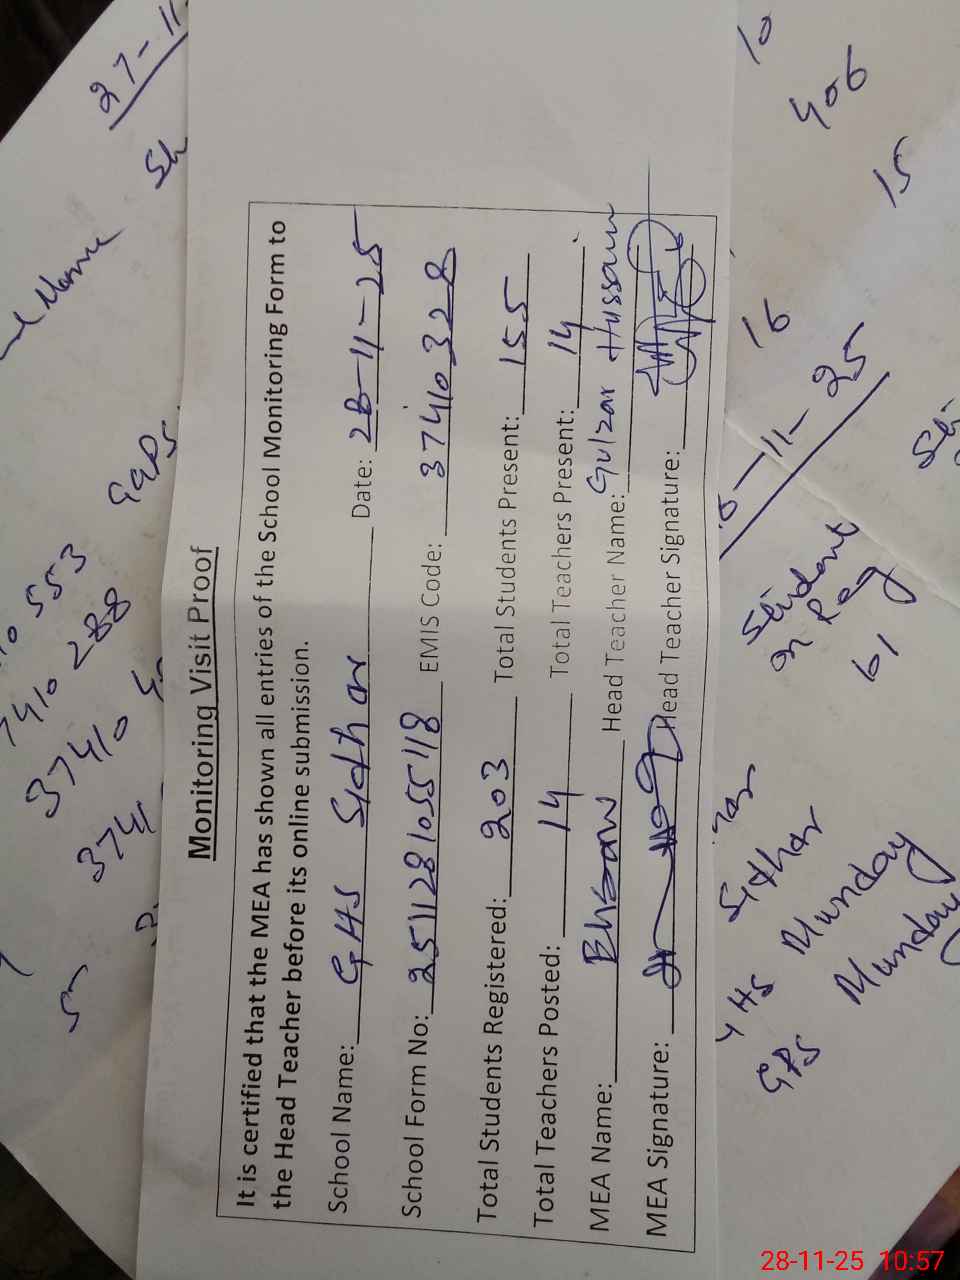 Monitoring Visit Proof
It is certified that the MEA has shown all entries of the School Monitoring Form to
the Head Teacher before its online submission.
School Name: GHS Sythar Date: 28-11-25
School Form No: 2511281055118 EMIS Code: 37410328
Total Students Registered: 203 Total Students Present: 155
Total Teachers Posted: 14 Total Teachers Present: 14
MEA Name: Head Teacher Name: Gulzar Hussain
MEA Signature: Head Teacher Signature:
27-11
Sh
Name
GGPS
553
7410 288
37410
3741
10
406
15
16
-11-25
Student
on
61
Sythar
GHS Munday
GPS Munday
28-11-25 10:57